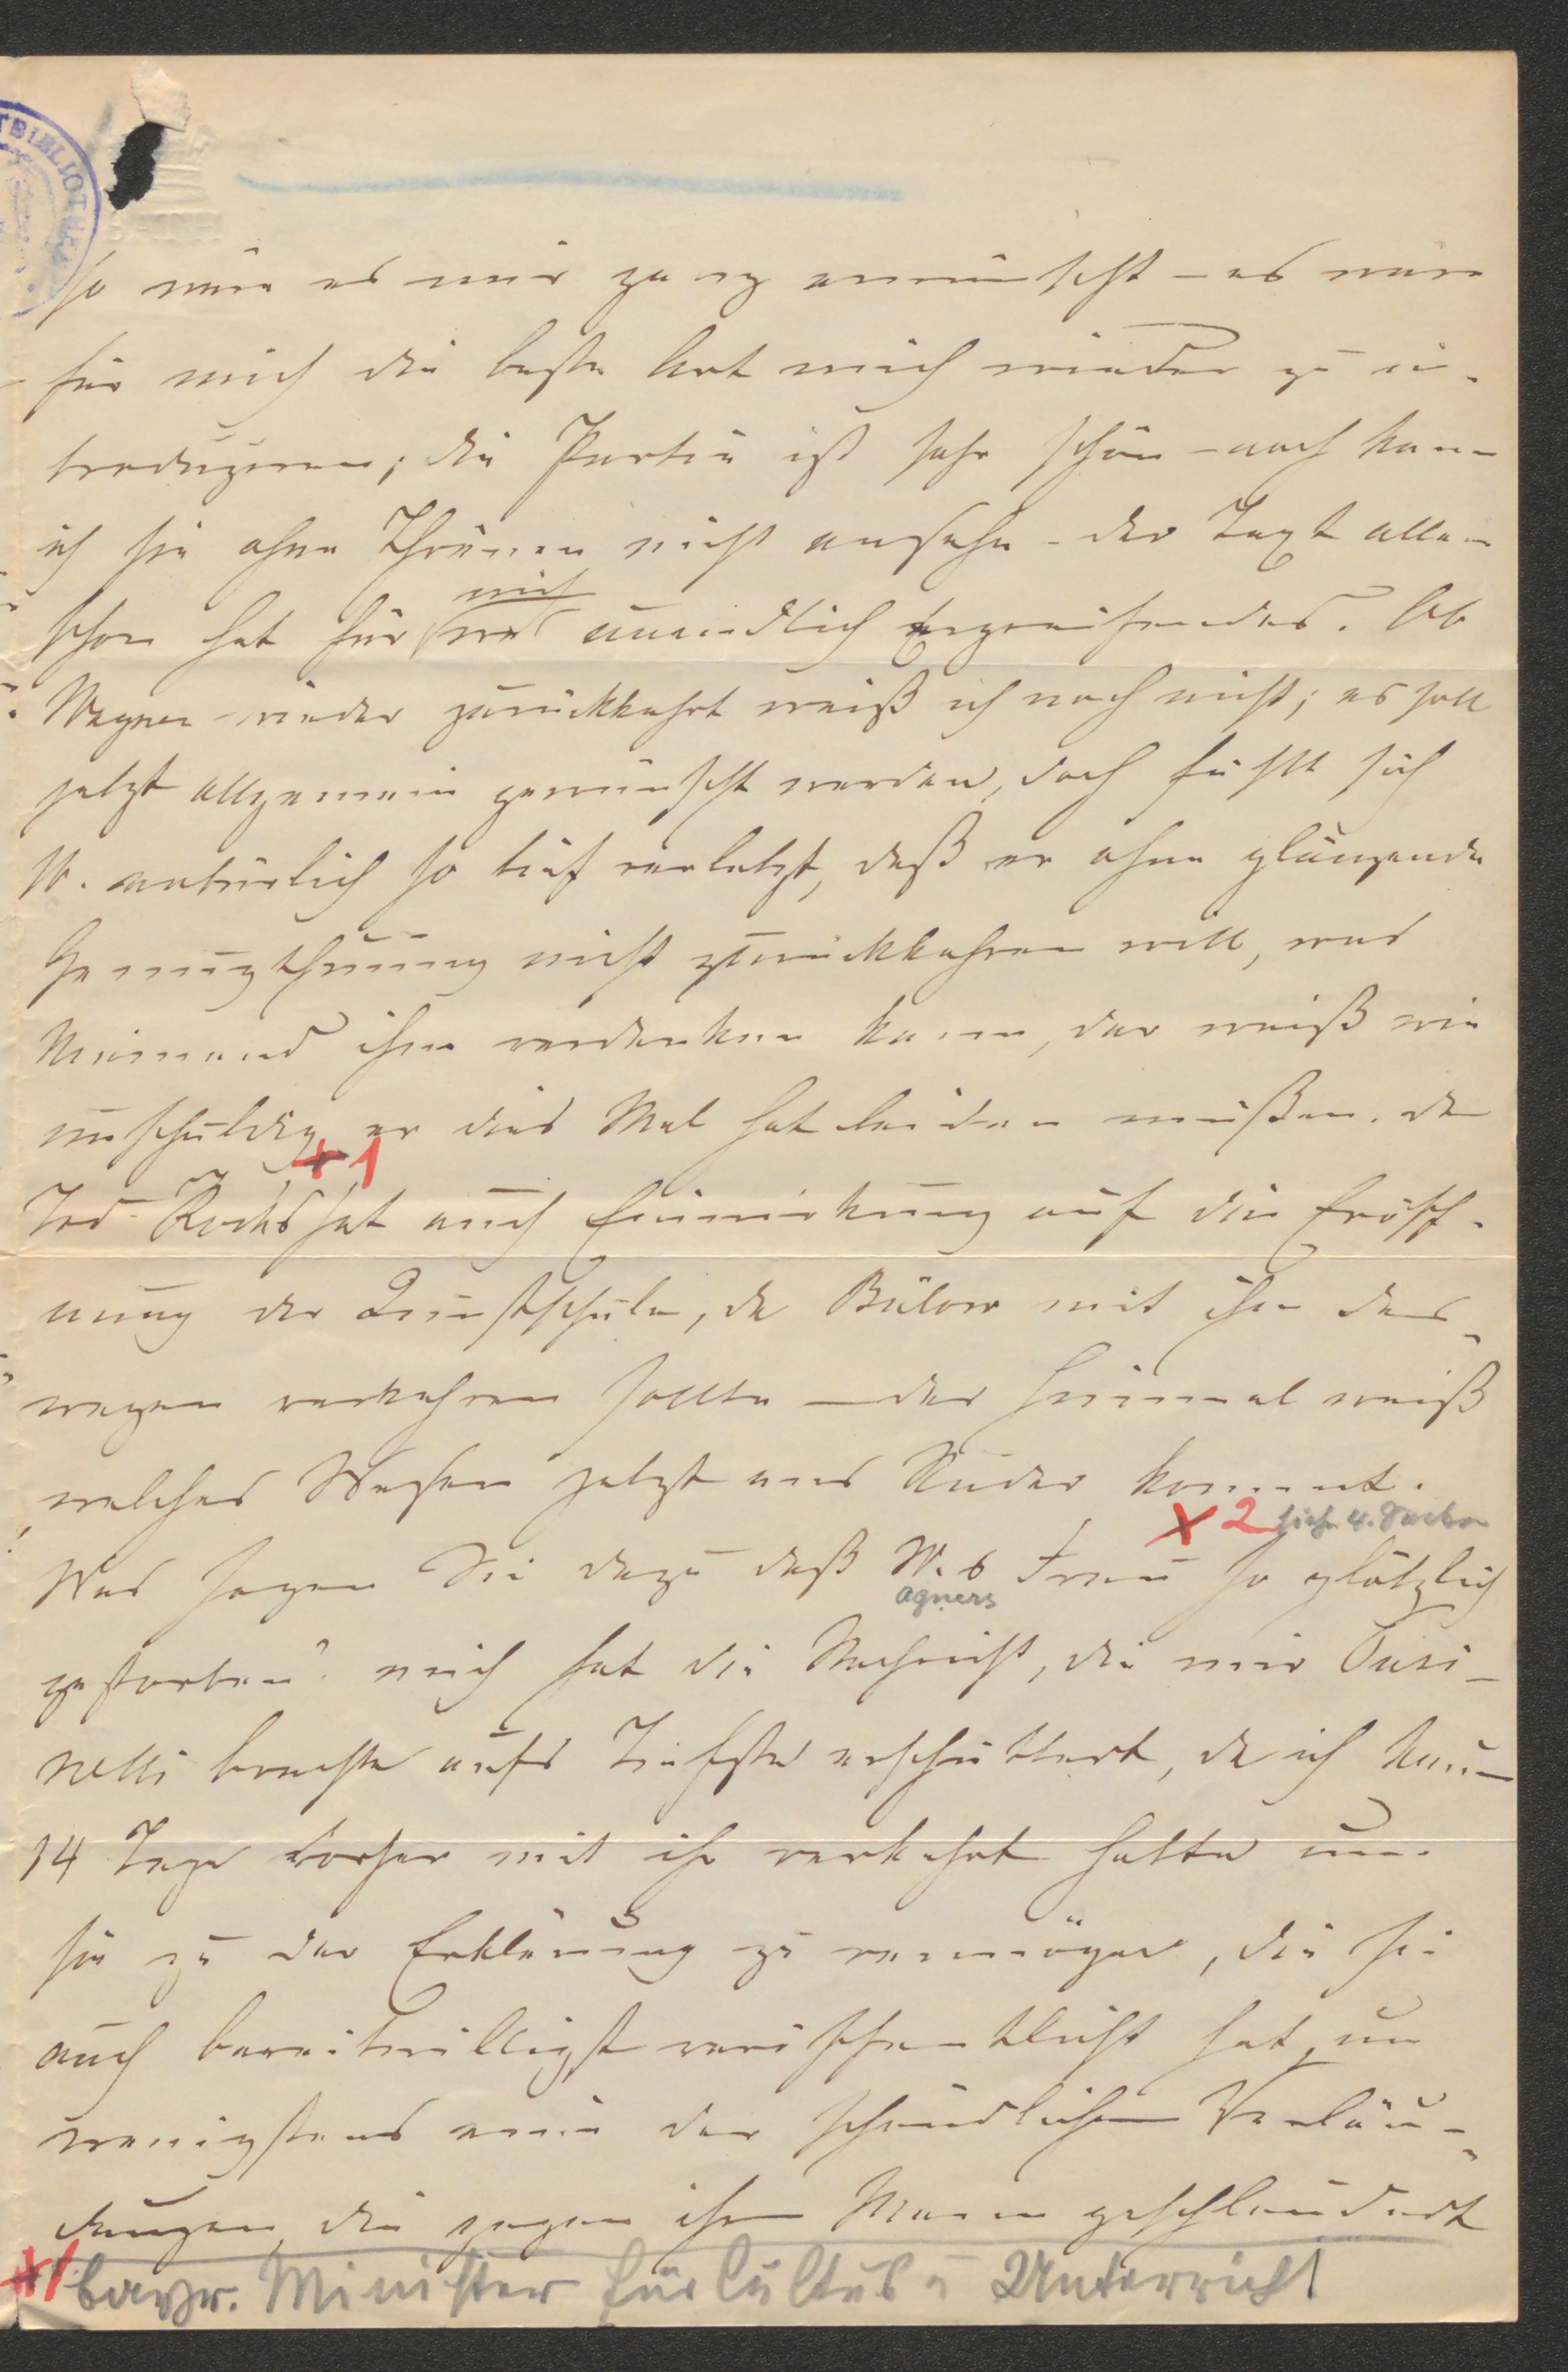 so wäre es mir ganz erwünscht – es wäre
für mich die beste Art mich wieder zu in-
troduziren; die Partie ist sehr schön – noch kann
ich sie ohne Thränen nicht ansehn – der Text allein
schon hat für mich was unendlich Ergreifendes. Ob
Wagner wieder zurückkehrt weiß ich noch nicht; es soll
jetzt allgemein gewünscht werden, doch fühlt sich
W. natürlich so tief verletzt, daß er ohne glänzende
Genugthuung nicht zurückkehren will, was
Niemand ihm verdenken kann, der weiß wie
unschuldig er dies Mal hat leiden müßen. der
+ 1
Tod Kochs hat auch Einwirkung auf die Eröff-
nung der Kunstschule, da Bülow mit ihm des-
wegen verkehren sollte – der Himmel weiß
welches Wesen jetzt ans Ruder kommt.
x 2 siehe 4. Seite
Was sagen Sie dazu daß W.s Frau so plötzlich
agners
gestorben? mich hat die Nachricht, die mir Pusi-
nelli brachte aufs Tiefste erschüttert, da ich kaum
14 Tage vorher mit ihr verkehrt hatte um
sie zu der Erklärung zu vermögen, die sie
auch bereitwilligst veröffentlicht hat, um
wenigstens eine der schändlichen Verläum-
dungen, die gegen ihren Mann geschleudert
+1 bayr. Minister für Cultus u Unterricht